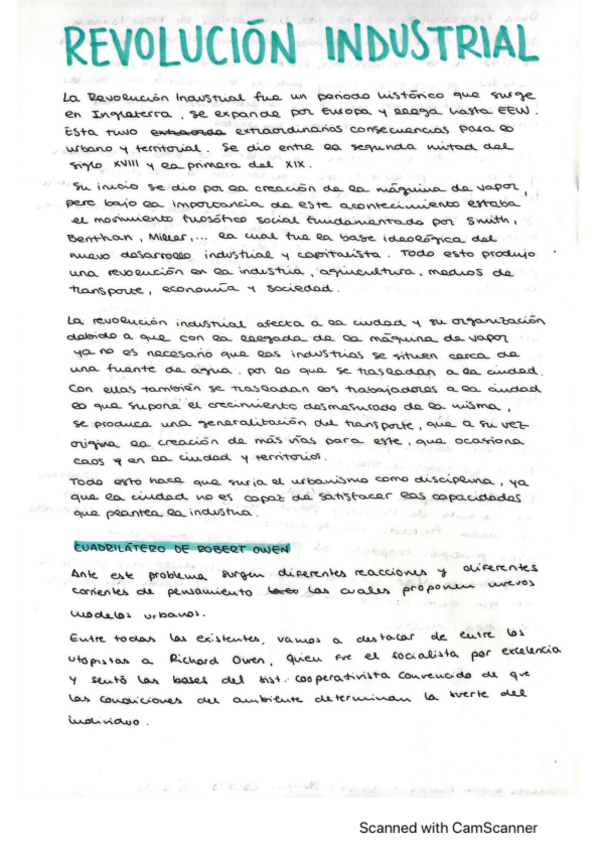 REVOLUCIÓN INDUSTRIAL
La Revolución Industrial fue un periodo histórico que surge
en Inglaterra, se expande por Europa y llega hasta EEUU.
Esta tuvo extraorda extraordinarias consecuencias para lo
urbano y territorial. Se dio entre la segunda mitad del
siglo XVIII y la primera del XIX.
Su inicio se dio por la creación de la máquina de vapor,
pero bajo la importancia de este acontecimiento estaba
el movimiento filosófico social fundamentado por Smith,
Benthan, Miller,... la cual fue la base ideológica del
nuevo desarrollo industrial y capitalista. Todo esto produjo
una revolución en la industria, agricultura, medios de
transporte, economía y sociedad.
La revolución industrial afecta a la ciudad y su organización
debido a que con la llegada de la máquina de vapor
ya no es necesario que las industrias se sitúen cerca de
una fuente de agua. por lo que se trasladan a la ciudad.
Con ellas también se trasladan los trabajadores a la ciudad
lo que supone el crecimiento desmesurado de la misma,
se produce una generalitación del transporte, que a su vez
origina la creación de más vías para este, que ocasiona
caos y en la ciudad y territorios.
Todo esto hace que surja el urbanismo como disciplina, ya
que la ciudad no es capaz de satisfacer las capacidades
que plantea la industria.
CUADRILÁTERO DE ROBERT OWEN
Ante este problema surgen diferentes reacciones y diferentes
corrientes de pensamiento las cuales proponen nuevos
modelos urbanos.
Entre todas las existentes, vamos a destacar de entre los
utopistas a Richard Owen, quien fue el socialista por excelencia
y sentó las bases del sist. cooperativista convencido de que
las condiciones del ambiente determinan la suerte del
individuo.
Scanned with CamScanner